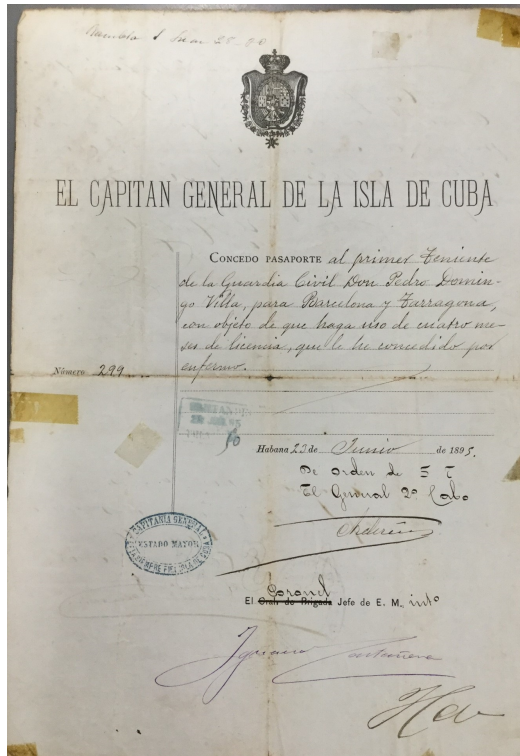 EL CAPITAN GENERAL DE LA ISLA DE CUBA
CONCEDO PASAPORTE al primer Teniente
de la Guardia Civil Don Pedro Domin-
go Villa, para Barcelona y Tarragona,
con objeto de que haga uso de cuatro me-
ses de licencia, que le he concedido por
enfermo.
Número 299
Habana 23 de Junio de 1895.
De orden de S E
El General 2º Cabo
CAPITANIA GENERAL
ESTADO MAYOR
Coronel
El Gral de Brigada Jefe de E. M. intº
Ignacio